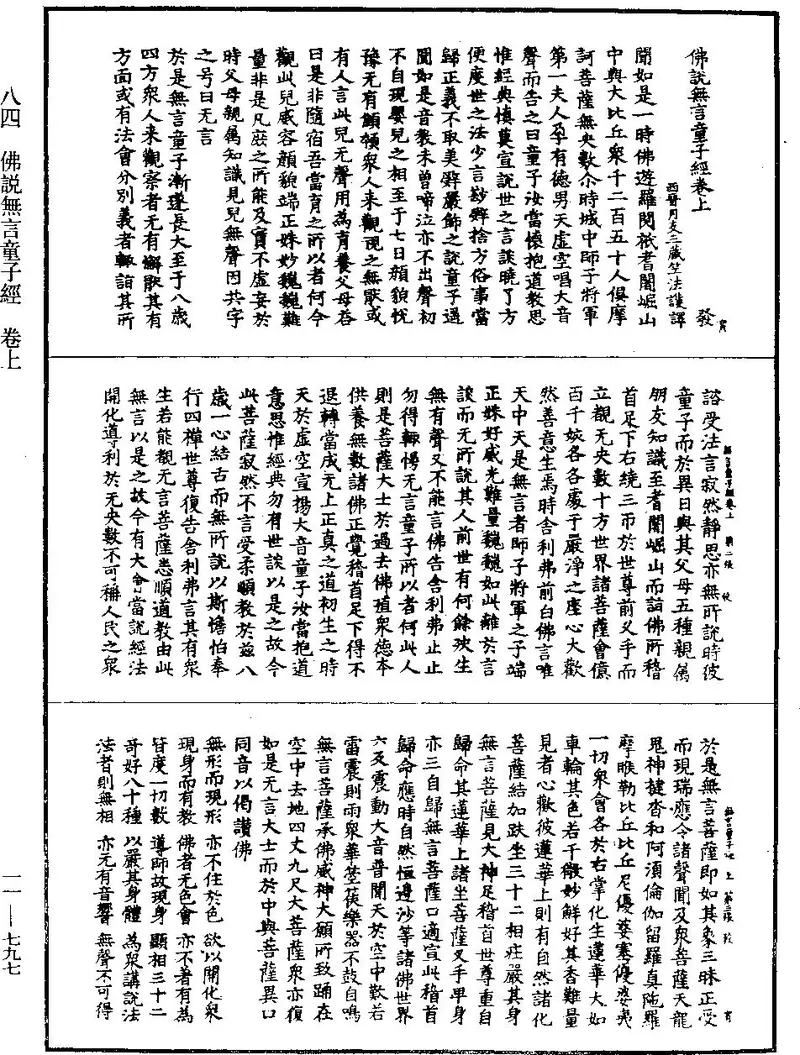 佛說無言童子經卷上　發
西晉月支三藏竺法護譯
聞如是一時佛遊羅閱祇耆闍崛山
中與大比丘衆千二百五十人俱摩
訶菩薩無央數尒時城中師子將軍
第一夫人孕有德男天於虛空唱大音
聲而告之曰童子汝當懷抱道教思
惟經典慎莫宣說世之言談曉了方
便度世之法少言尠辭捨方俗事當
歸正義不取美辭嚴飾之說童子適
聞如是音教未曾啼泣亦不出聲初
不自現嬰兒之相至于七日顏貌悅
豫无有顦顇衆人来觀視之無猒或
有人言此兒无聲用爲育養父母荅
曰是非隨宿吾當育之所以者何今
觀此兒威容顏貌端正姝妙巍巍難
量非是凡庶之所能及實不虛妄於
時父母親屬知識見兒無聲因共字
之号曰无言
於是無言童子漸漸長大至于八歲
四方衆人来觀察者无有懈猒其有
方面或有法會分別義者輙詣其所
諮受法言寂然靜思亦無所說時彼
童子而於異日與其父母五種親屬
朋友知識至耆闍崛山而詣佛所稽
首足下右繞三帀於世尊前叉手而
立觀无央數十方世界諸菩薩會億
百千姟各各處于嚴淨之座心大歡
然善意生焉時舍利弗前白佛言唯
天中天是無言者師子將軍之子端
正姝好威光難量巍巍如此難於言
談而无所說其人前世有何餘殃生
無有聲又不能言佛告舍利弗止止
勿得輙慢无言童子所以者何此人
則是菩薩大士於過去佛殖衆德本
供養無數諸佛正覺稽首足下得不
退轉當成无上正真之道初生之時
天於虛空宣揚大音童子汝當抱道
意思惟經典勿有世談以是之故今
此菩薩寂然不言受柔順教於兹八
歲一心結舌而無所說以斯憺怕奉
行四禪世尊復告舍利弗言其有衆
生若能覩无言菩薩悉順道教由此
無言以是之故今有大會當說經法
開化導利於无央數不可稱人民之衆
於是無言菩薩即如其像三昧正受
而現瑞應令諸聲聞及衆菩薩天龍
鬼神揵沓和阿須倫迦留羅真陁羅
摩睺勒比丘比丘尼優婆塞優婆夷
一切衆會各於右掌化生蓮華大如
車輪其色若干微妙鮮好其香難量
見者心歡彼蓮華上則有自然諸化
菩薩結加趺坐三十二相莊嚴其身
無言菩薩見大神足稽首世尊重自
歸命其蓮華上諸坐菩薩叉手畢身
亦三自歸無言菩薩口適宣此稽首
歸命應時自然恒邊沙等諸佛世界
六反震動大音普聞天於空中歎若
雷震則雨衆華箜篌樂器不鼓自鳴
無言菩薩承佛威神大願所致踊在
空中去地四丈九尺大菩薩衆亦復
如是无言大士而於中與菩薩異口
同音以偈讚佛
無形而現形　亦不住於色　欲以開化衆
現身而有教　佛者无色會　亦不著有爲
皆度一切數　導師故現身　顯相三十二
奇好八十種　以嚴其身體　爲衆講說法
法者則無相　亦无有音響　無聲不可得
八四　佛説無言童子經　卷上
一一—七九七